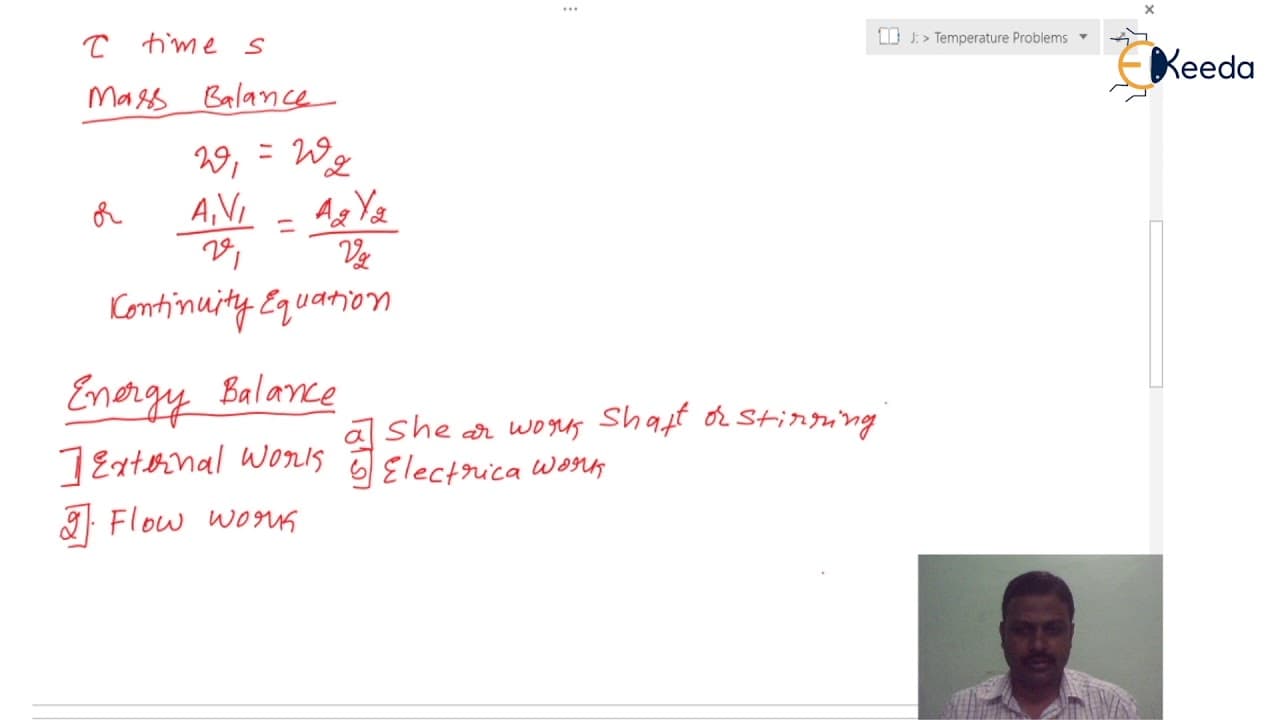 J: > Temperature Problems
EKeeda
τ time s
Mass Balance
w₁ = w₂
or A₁V₁/v₁ = A₂V₂/v₂
Continuity Equation
Energy Balance
1] External Work a] Shear work Shaft or stirring
b] Electrica work
2]. Flow work